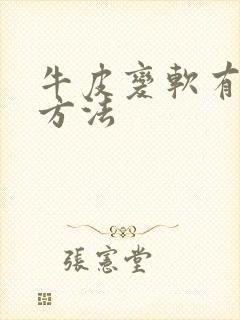 牛皮變軟有
方法
張憲堂